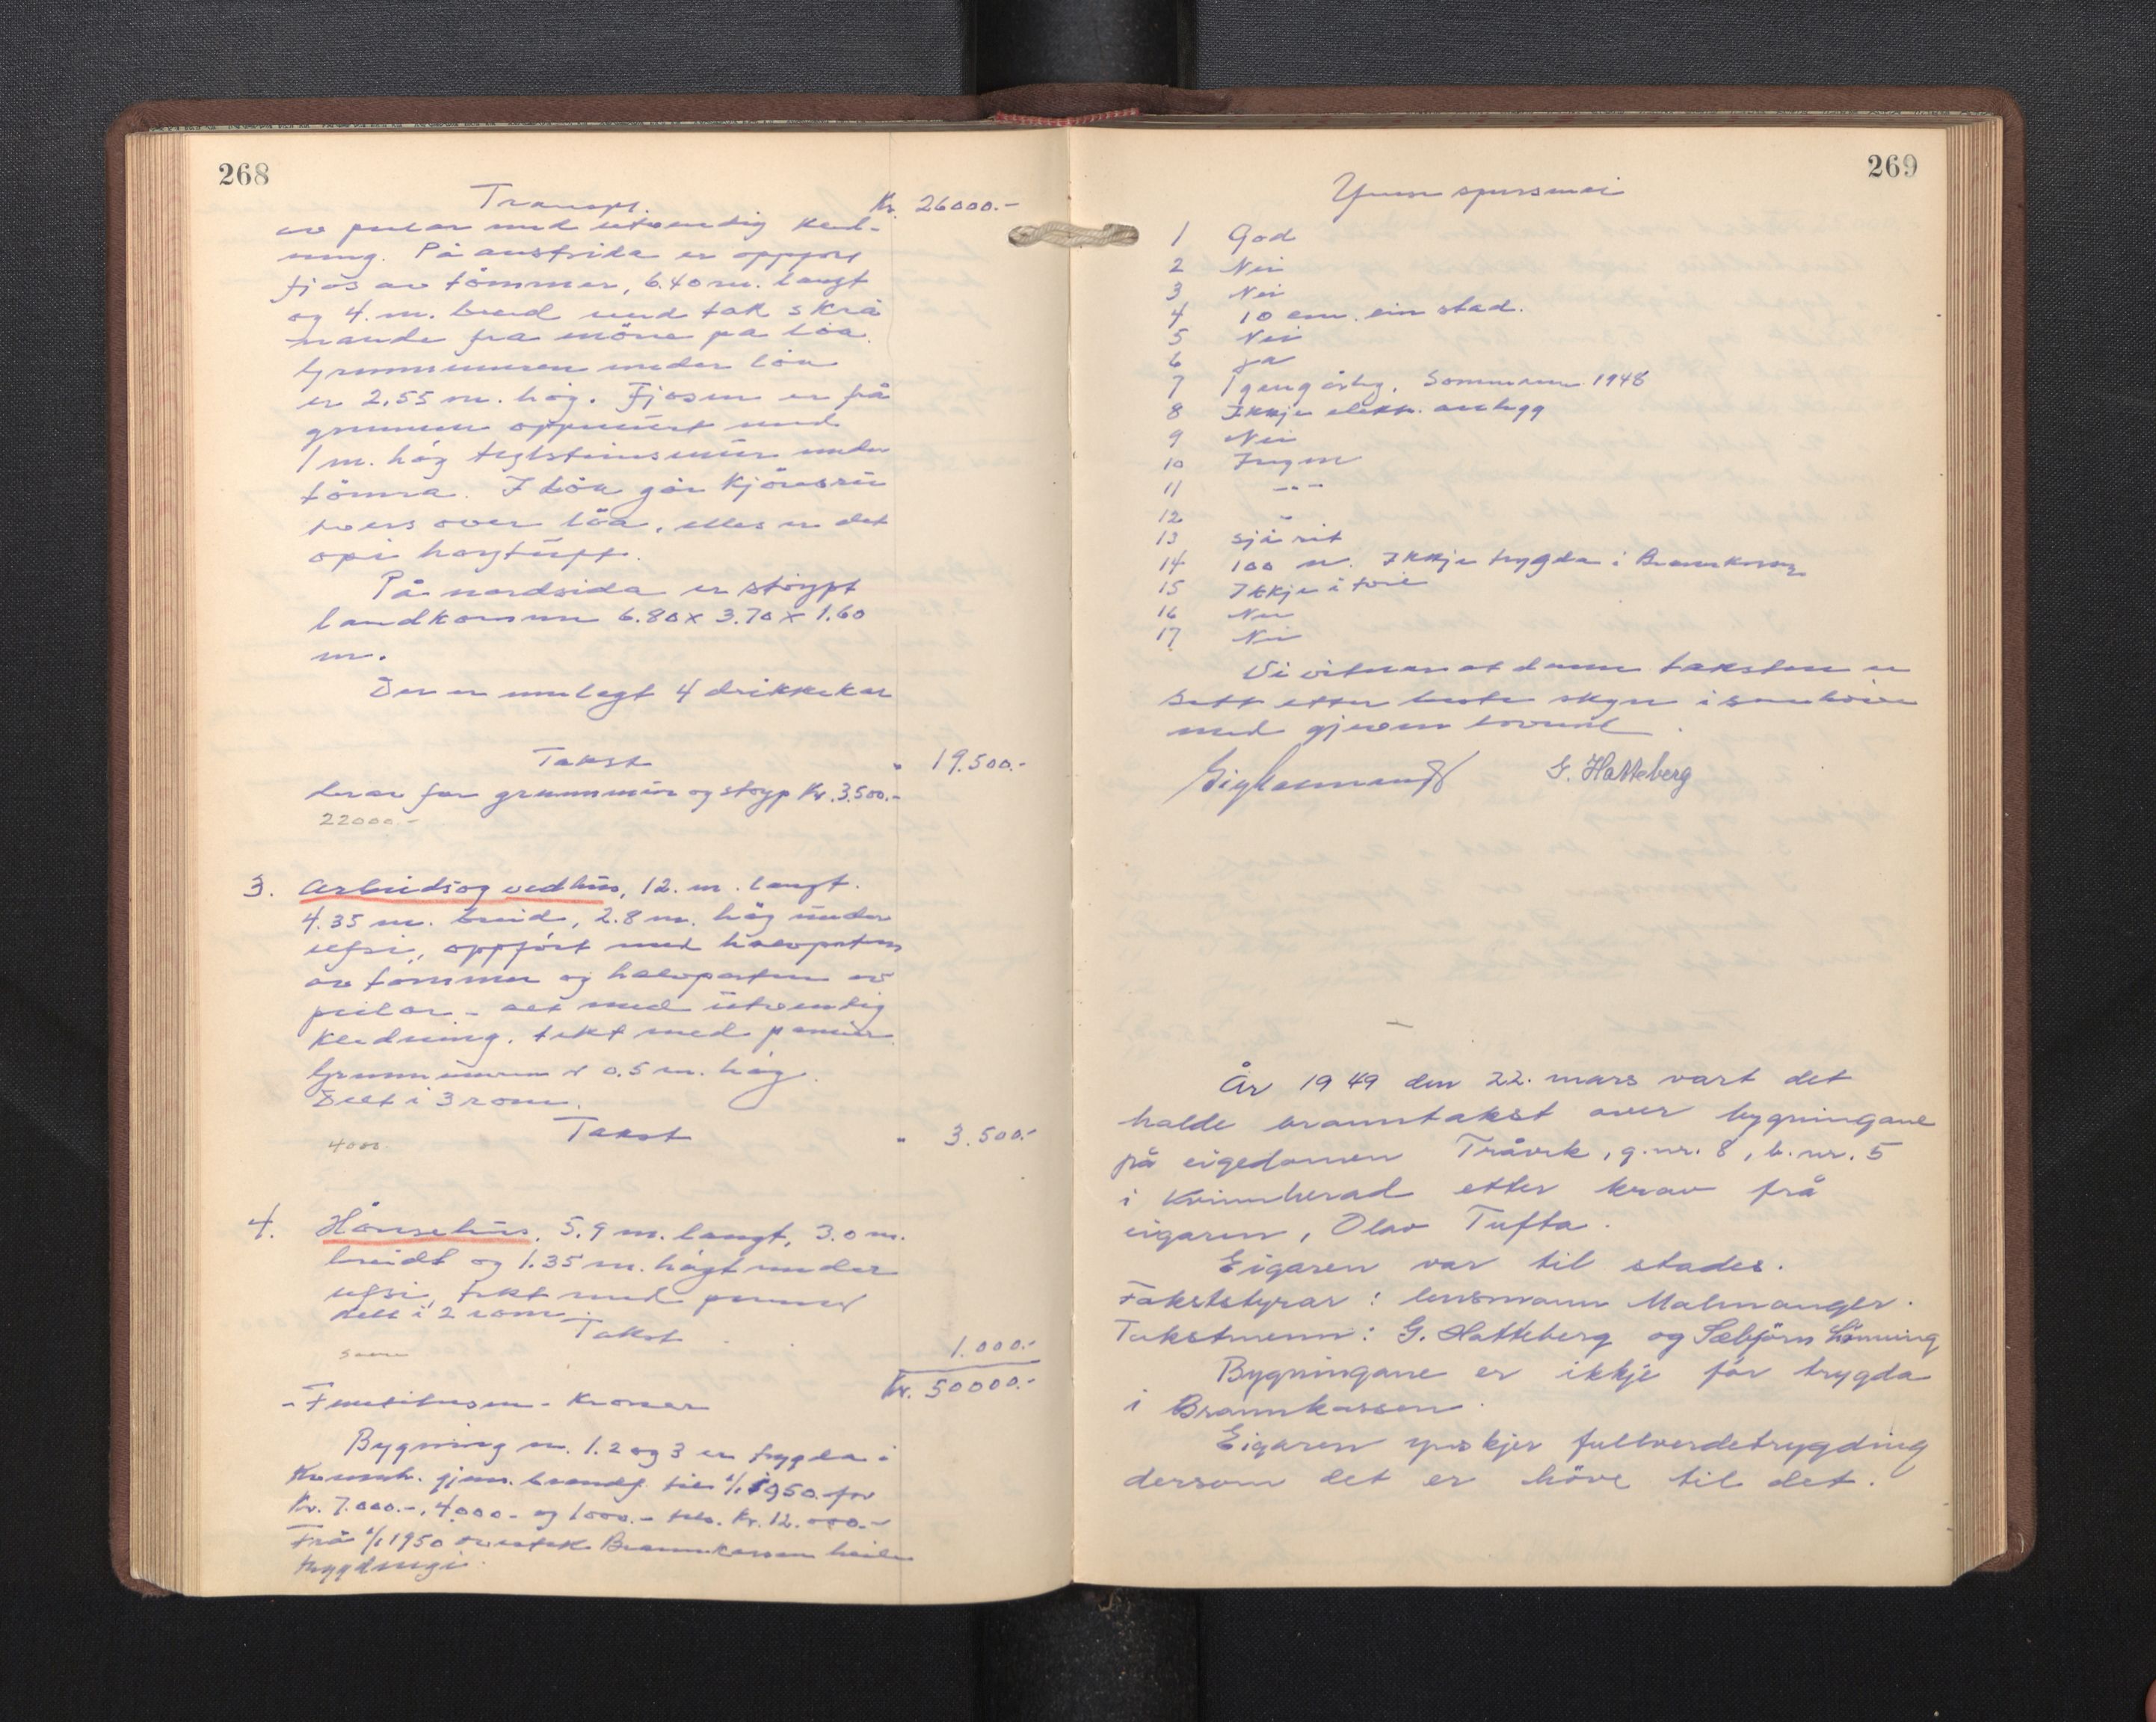 268
Transp. Kr. 26000.-
av pilar med utvendig kled-
ning. På austsida er oppfört
fjös av tömmer, 6.40 m. langt
og 4. m. breid med tak skrå
nande fra möne på löa.
Grunnmuren under löa
er 2,55 m. høg. Fjosen er frå
grunnen oppmurt med
1 m. høg teglsteinsmur under
tömra. I löa går kjörebru
tvers over löa, elles er det
opi høytuft.
På nordsida er støypt
landkommen 6.80 x 3.70 x 1.60
m.
Der er innlagt 4 drikkekar
Takst " 19.500.-
derav for grunnmur og støyp Kr. 3.500.-
22000.-
3. Arbeids og vedhus, 12. m. langt.
4.35 m. breid, 2.8 m. høg under
ufsi, oppfört med halvparten
av tömmer og halvparten av
pilar - alt med utvendig
kledning. tekt med pannur.
Grunnmuren er 0.5 m. høg.
Delt i 3 rom.
Takst " 3.500.-
4000.
4. Hönsehus, 5.9 m. langt, 3.0 m.
breidt og 1.35 m. høgt under
ufsi, tekt med pannur
delt i 2 rom.
Takst 1.000.-
same
Kr. 50000.-
- Femtitusen - Kroner
Bygning nr. 1. 2 og 3 er trygda i
Kvinnh. gjens. brandf. til 1/1 1950 for
Kr. 7.000.-, 4.000- og 1000.- tils. Kr. 12.000.-
Frå 1/1 1950 overtek Brannkassen heile
trygdingi.
269
Ymse spursmål
1 God
2 Nei
3 Nei
4 10 cm. ein stad.
5 Nei
6 Ja
7 Igangårby. Sommaren 1948
8 Ikkje elektr. anlegg
9 Nei
10 Ingen
11 -"-
12 "
13 Sjå rit
14 100 m. Ikkje trygda i Brannkassen
15 Ikkje i tvil
16 Nei
17 Nei
Vi vitnar at denne taksten er
sett etter beste skyn i samhøve
med gjeven lovnad.
G. Hatteberg
År 1949 den 22. mars vart det
halde branntakst over bygningane
på eigedomen Tråvik, g.nr. 8, b.nr. 5
i Kvinnherad etter krav frå
eigaren, Olav Tufta.
Eigaren var til stades.
Takststyrar: lensmann Malmanger.
Takstmenn: G. Hatteberg og Sæbjörn Lönning
Bygningane er ikkje för trygda
i Brannkassen.
Eigaren ynskjer fullverdetrygding
dersom det er höve til det.